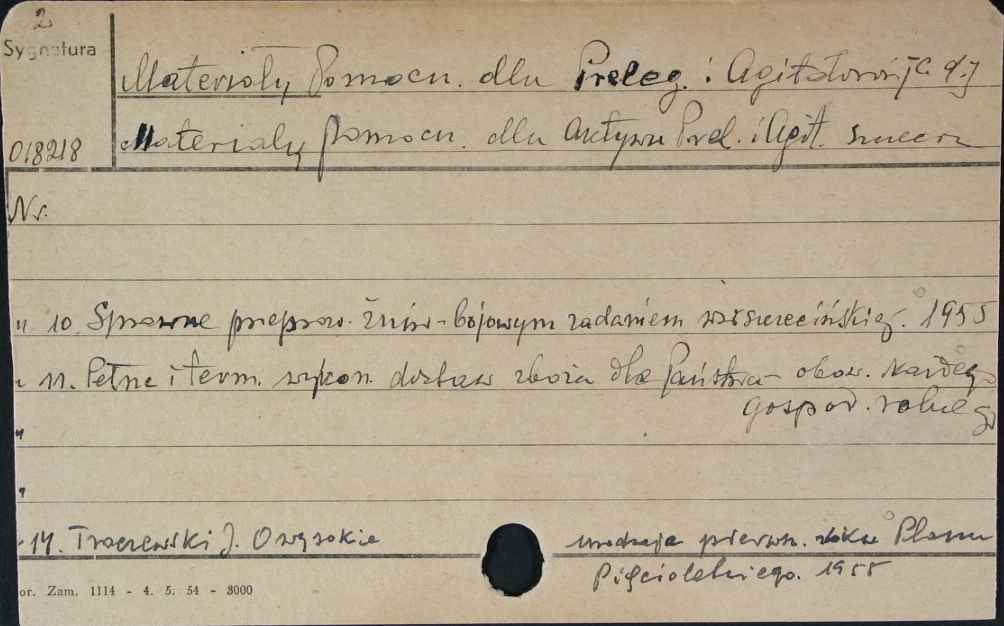 2
Sygnatura
Materiały Pomocn. dla Preleg. i Agitatorów
018218
Materiały Pomocn. dla Aktywu Prel. i Agit.
Nr.
" 10. Sprawne przeprow. żniw - bojowym zadaniem 1955
" 11. Pełne i term. wykon. dostaw zboża dla Państwa - obow. każdego
gospod. rolneg
"
"
" 14. Traczewski J. O wysokie urodzaje pierwsz. roku Planu
Pięcioletniego. 1955
or. Zam. 1114 - 4. 5. 54 - 3000